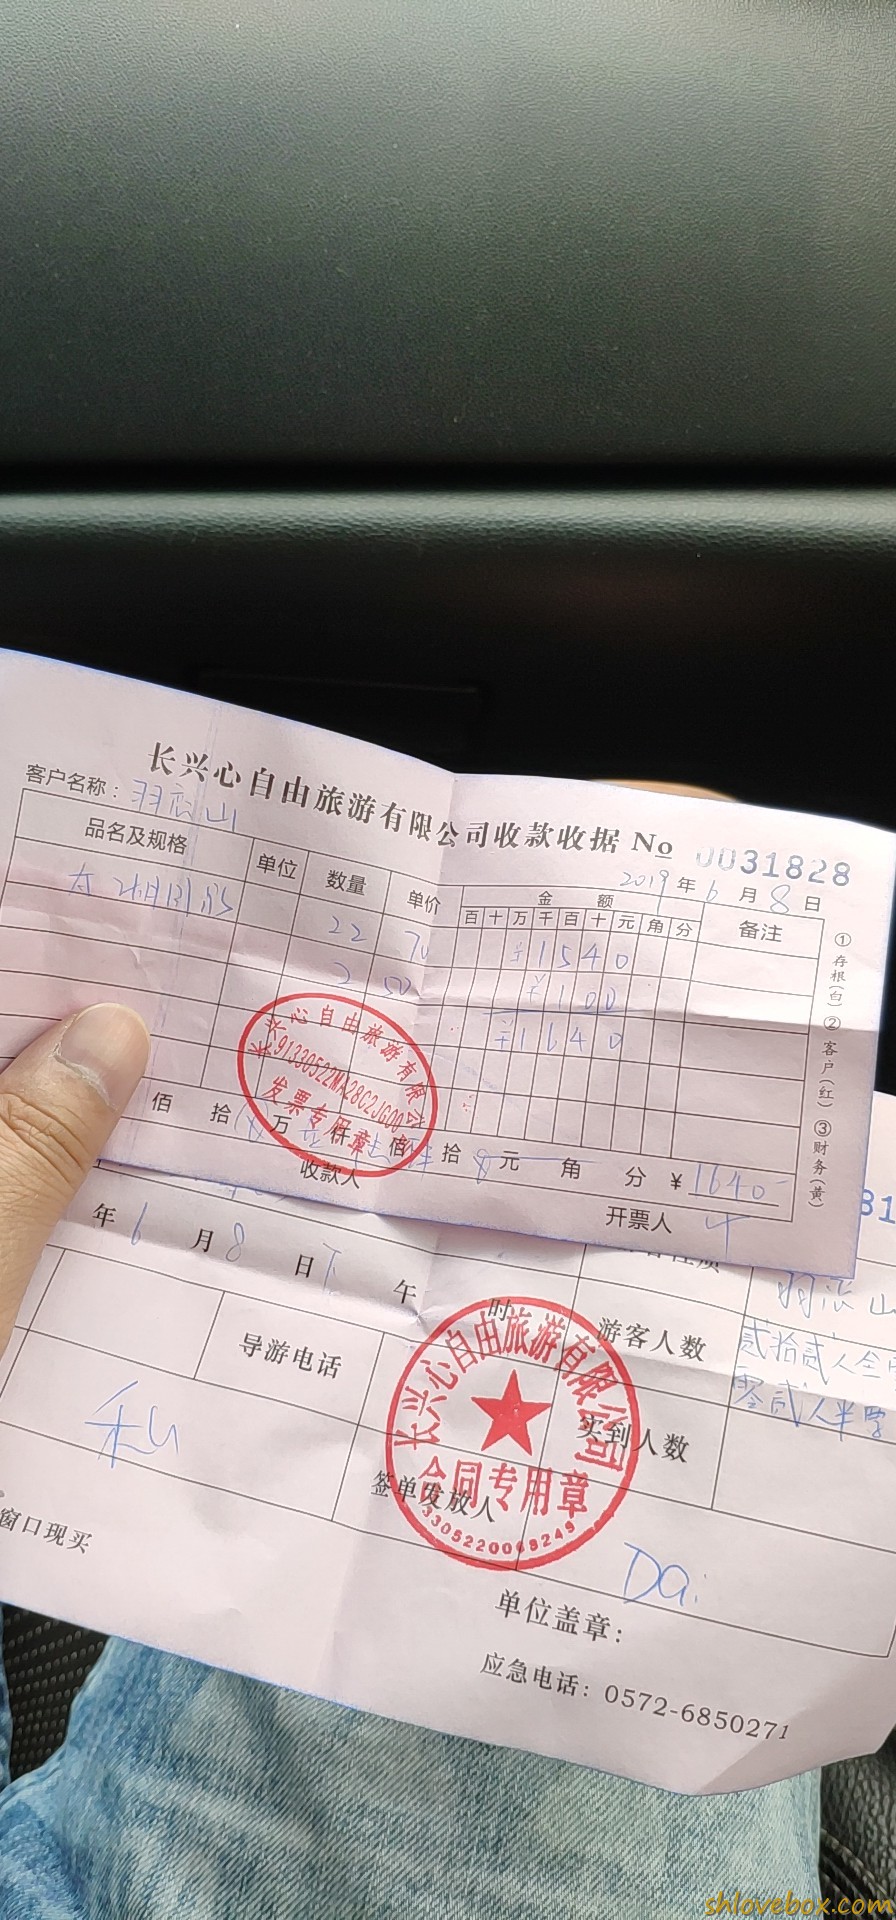 长兴心自由旅游有限公司收款收据 No 0031828
客户名称：
2019 年 6 月 8 日
品名及规格 单位 数量 单价 金额 备注
百 十 万 千 百 十 元 角 分
22 70 ¥1540
2 50 ¥100
¥1640
佰 拾 万 仟 佰 拾 元 角 分 ¥1640
收款人
开票人
①存根(白) ②客户(红) ③财务(黄)
长兴心自由旅游有限公司
91330522MA28C2JG00
发票专用章
年 6 月 8 日 下 午 时
游客人数 贰拾贰人全
零贰人半票
导游电话
实到人数
签单发放人
Dai
长兴心自由旅游有限公司
合同专用章
窗口现买
单位盖章：
应急电话：0572-6850271
shlovebox.com